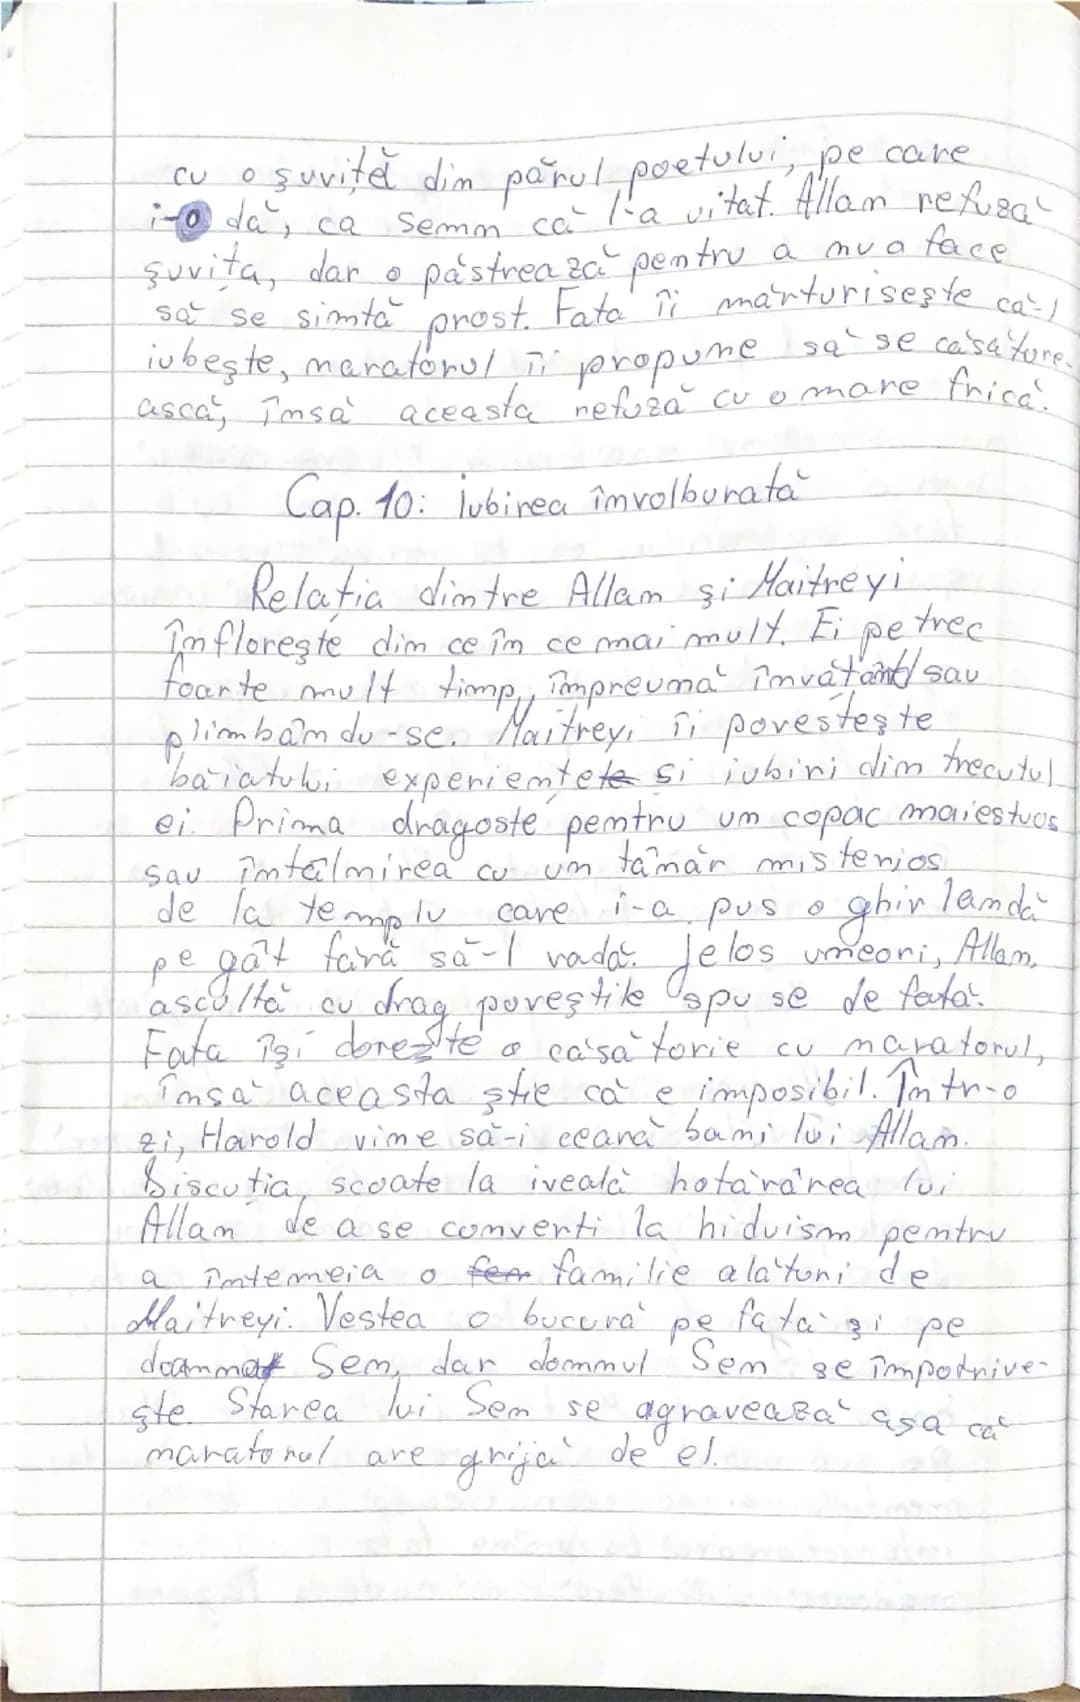 cu o șuviță din părul poetului, pe care
i-o dă, ca semn că l-a uitat. Allan refuză
șuvița, dar o păstrează pentru a nu a face
să se simtă prost. Fata îi mărturisește că-l
iubește, naratorul îi propune să se căsătore-
ască, însă aceasta refuză cu o mare frică.
Cap. 10: Iubirea învolburată
Relația dintre Allan și Maitreyi
înflorește din ce în ce mai mult. Ei petrec
foarte mult timp, împreună învățând/sau
plimbându-se. Maitreyi îi povestește
băiatului experiențe și iubiri din trecutul
ei. Prima dragoste pentru un copac maiestuos
sau întâlnirea cu un tânăr misterios
de la templu care i-a pus o ghirlandă
pe gât fără să-l vadă. Jelos uneori, Allan,
ascultă cu drag poveștile spuse de fată.
Fata își dorește o căsătorie cu naratorul,
însă aceasta știe că e imposibil. Într-o
zi, Harold vine să-i ceară bani lui Allan.
Discuția, scoate la iveală hotărârea lui
Allan de a se converti la hiduism pentru
a întemeia o familie alături de
Maitreyi. Vestea o bucură pe fată și pe
doamna Sen, dar domnul Sen se împotrive-
ște. Starea lui Sen se agravează așa că
naratorul are grijă de el.